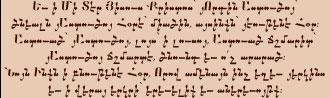 Եւ ի Մի Տէր Յիսուս Քրիստոս՝ յՈրդին Աստուծոյ
ծնեալն յԱստուծոյ Հօրէ՝ միածին, այսինքն՝ յէութենէ Հօր:
Աստուած՝ յԱստուծոյ, լոյս ի լուսոյ, Աստուած ճշմարիտ
յԱստուծոյ ճշմարտէ. ծնունդ եւ ո՛չ արարած:
Նոյն ինքն ի բնութենէ Հօր, Որով ամենայն ինչ եղեւ յերկինս
եւ ի վերայ երկրի երեւելիք եւ աներեւոյթք: